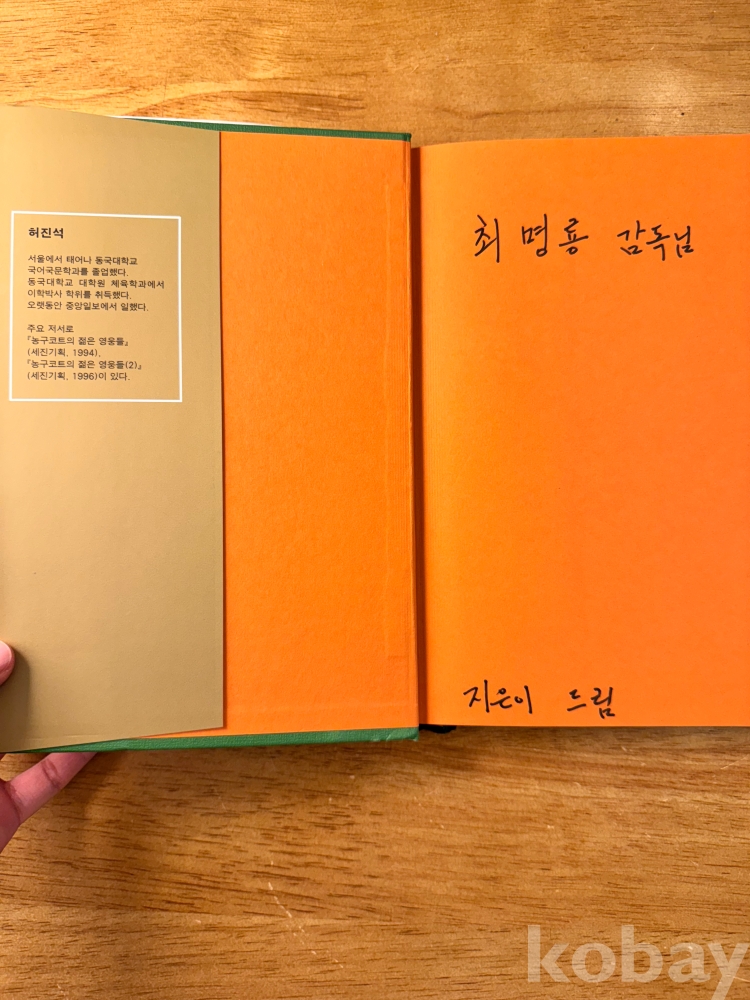 허진석
서울에서 태어나 동국대학교
국어국문학과를 졸업했다.
동국대학교 대학원 체육학과에서
이학박사 학위를 취득했다.
오랫동안 중앙일보에서 일했다.
주요 저서로
『농구코트의 젊은 영웅들』
(세진기획, 1994),
『농구코트의 젊은 영웅들(2)』
(세진기획, 1996)이 있다.
최명룡 감독님
지은이 드림
kobay